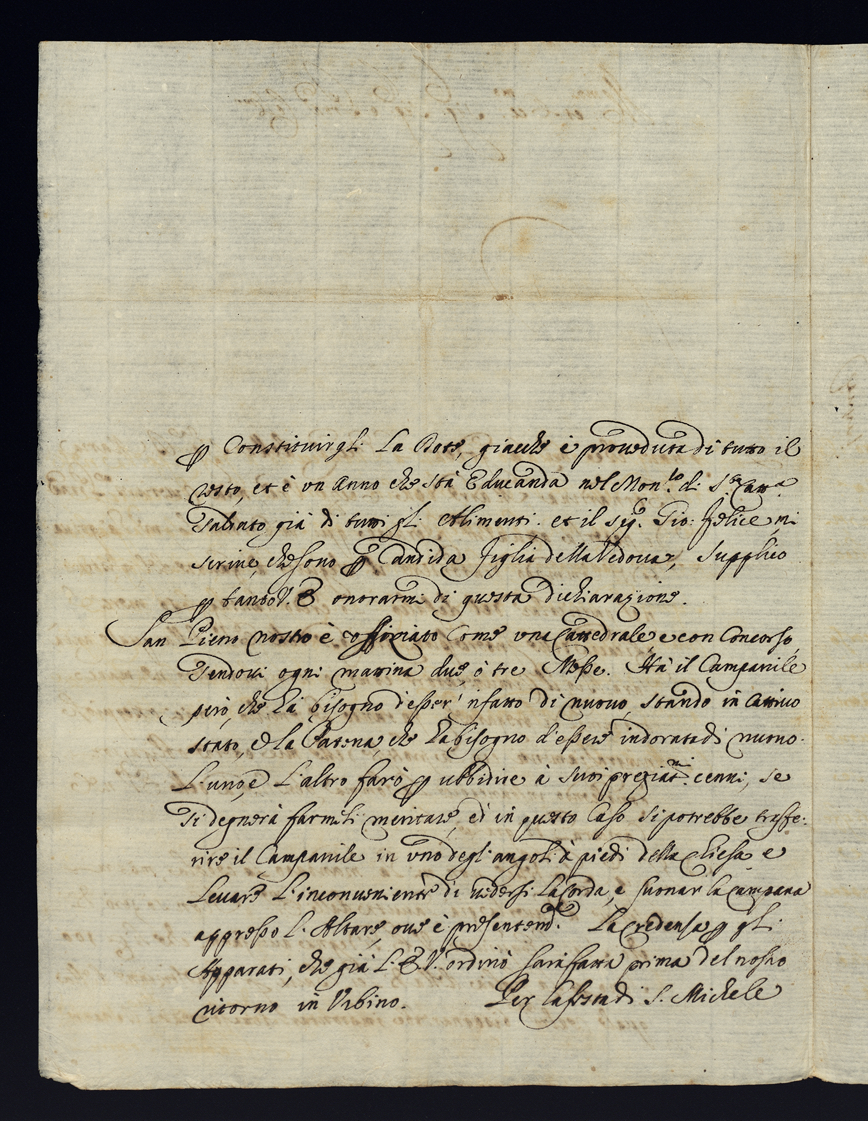 ꝑ Constituirgli La Dote, giacche è proueduta di tutto il
resto, et è vn Anno che stà Educanda nel Mon.to di S.ta Catt.a
saluato già di tutti gli Alimenti. et il Sig.r Gio: Felice, mi
scriue, che sono ꝑ Candida figlia della Vedoua, supplico
ꝑ tanto V. E onorarmi di questa dichiarazione.
San Pietro nostro è offiziato Come vna Cattedrale e con Concorso
Sendoui ogni mattina due ò tre Messe. Hà il Campanile
però, che hà bisogno d'esser' rifatto di nuouo, stando in Cattiuo
stato, e la Patena, che hà bisogno d'essere indorata di nuouo.
L'uno, e L'altro farò ꝑ ubbidire à suoi pregiat.mi cenni, se
si degnerà farmeli meritare, ed in questo Caso si potrebbe trasfe:
rire il Campanile in vno degl'angoli à piedi della Chiesa e
Leuare L'inconueniente di uedersi la Corda, e suonar la Campana
appresso L'Altare, oue è presentem.te La Credensa ꝑ gli
Apparati, che già L'E. V. ordinò sarà fatta prima del nostro
ritorno in Vrbino. Per la festa di S. Michele